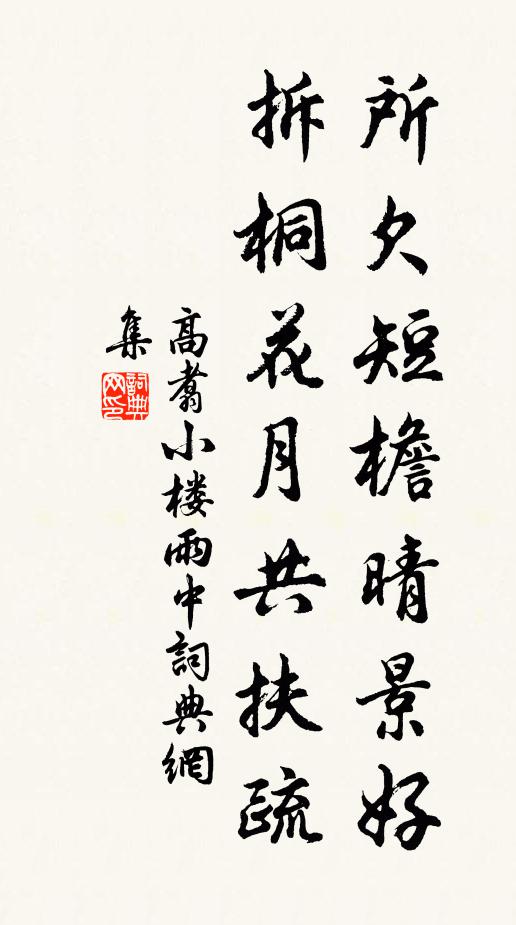 所欠短檐晴景好
拆桐花月共扶疏
高翥小楼雨中詞典網
集
詞典网印